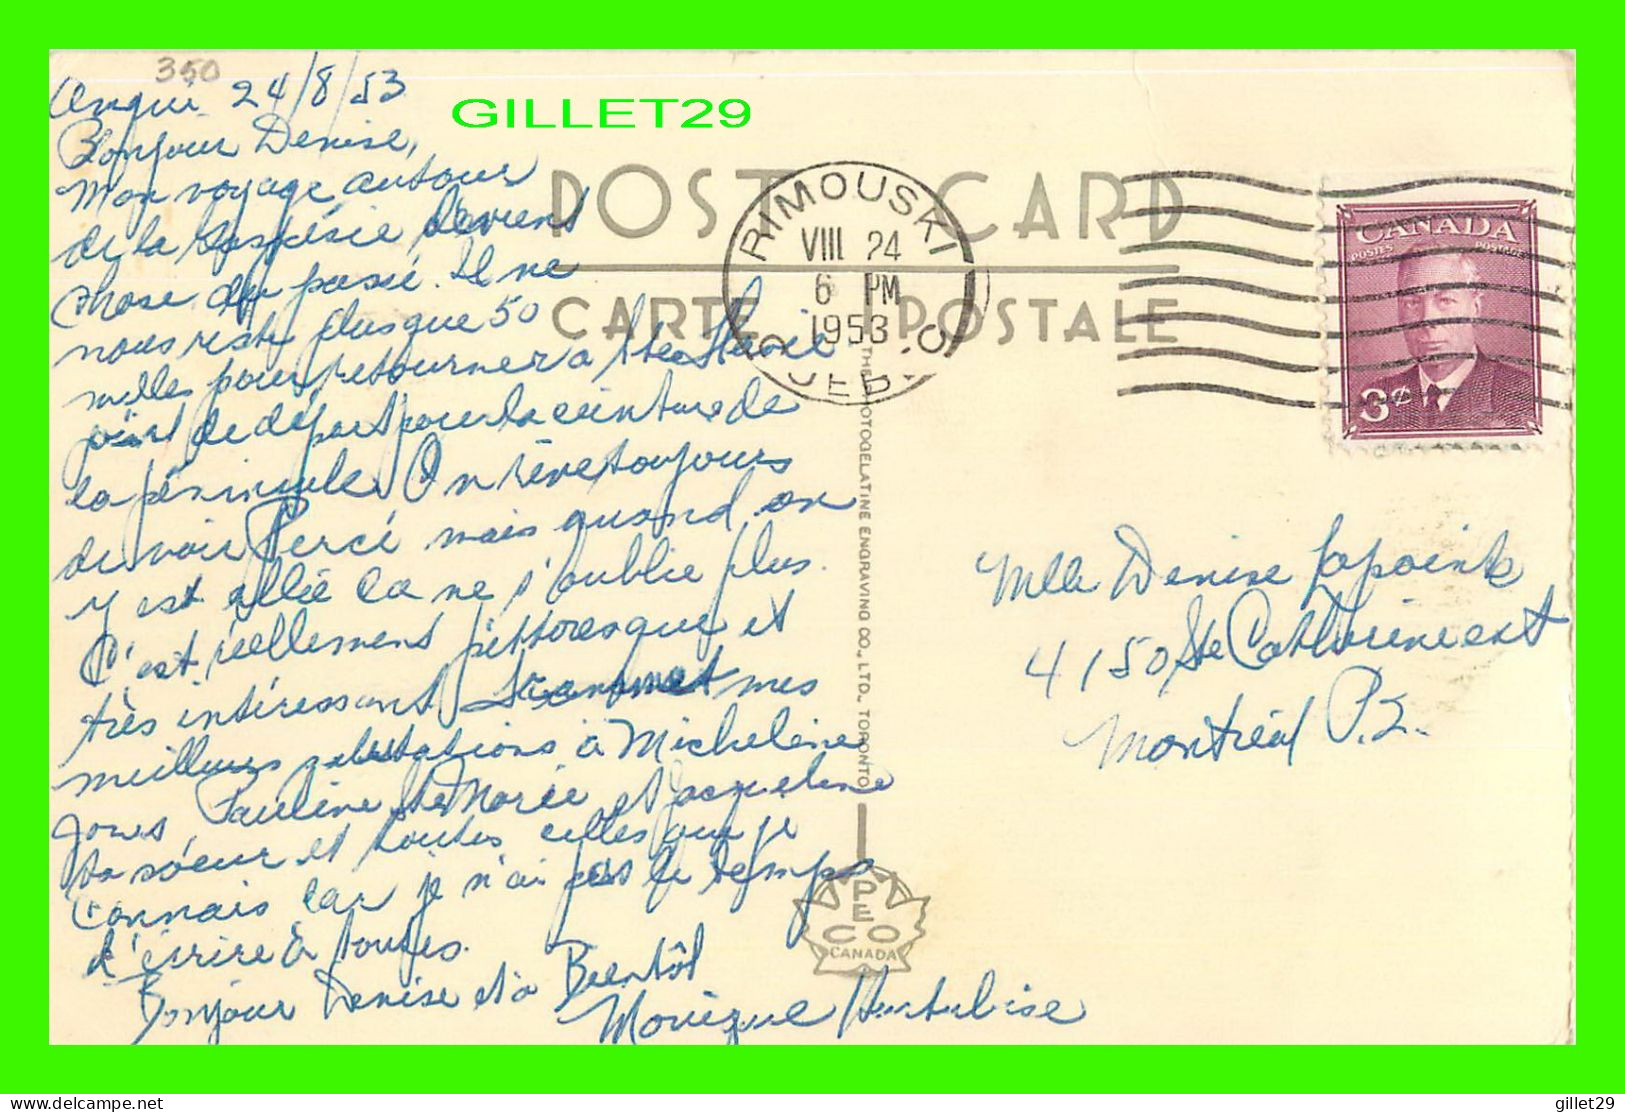 350
Amqui 24/8/53
Bonjour Denise,
Mon voyage autour
de la Gaspésie devient
chose du passé. Il ne
nous reste plus que 50
milles pour retourner à Ste Flavie
point de départ pour la ceinture de
la péninsule. On rêve toujours
de voir Percé mais quand on
y est allée ça ne s'oublie plus.
C'est réellement pittoresque et
très intéressant mes
meilleures salutations à Micheline
Jones, Pauline Ste Marie et Jacqueline
ta soeur et toutes celles que je
connais car je n'ai pas le temps
d'écrire à toutes.
Bonjour Denise et à Bientôt
Monique Hurtubise
GILLET29
POST CARD
CARTE POSTALE
RIMOUSKI
VIII 24
6 PM
1953
QUEBEC
CANADA
POSTES POSTAGE
3¢
THE PHOTOGELATINE ENGRAVING CO., LTD., TORONTO
PECO
CANADA
Mlle Denise Lapointe
4150 Ste Catherine est
Montréal P.Q.
delcampe.net
gillet29